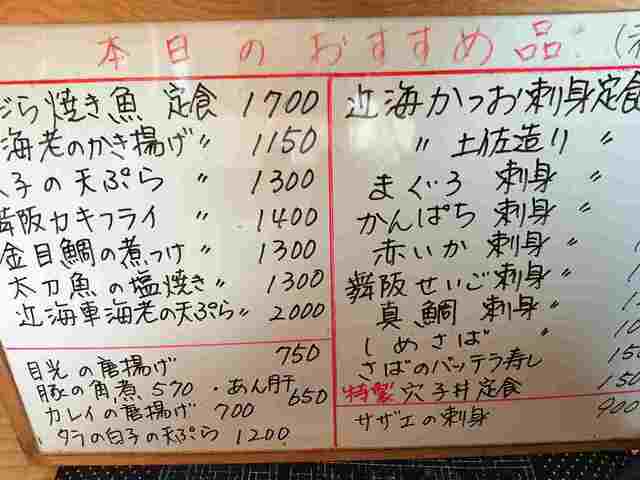 本日のおすすめ品.
ぢら焼き魚 定食 1700
海老のかき揚げ 〃 1150
穴子の天ぷら 〃 1300
舞阪カキフライ 〃 1400
金目鯛の煮つけ 〃 1300
太刀魚の塩焼き 〃 1300
近海車海老の天ぷら 〃 2000
目光の唐揚げ 750
豚の角煮 570 ・あん肝 650
カレイの唐揚げ 700
タラの白子の天ぷら 1200
近海かつお刺身定食
〃 土佐造り 〃
まぐろ 刺身 〃
かんぱち 刺身 〃
赤いか 刺身 〃
舞阪せいご刺身 〃
真鯛 刺身 〃
しめさば 〃
さばのバッテラ寿し
特製 穴子丼定食
サザエの刺身 900